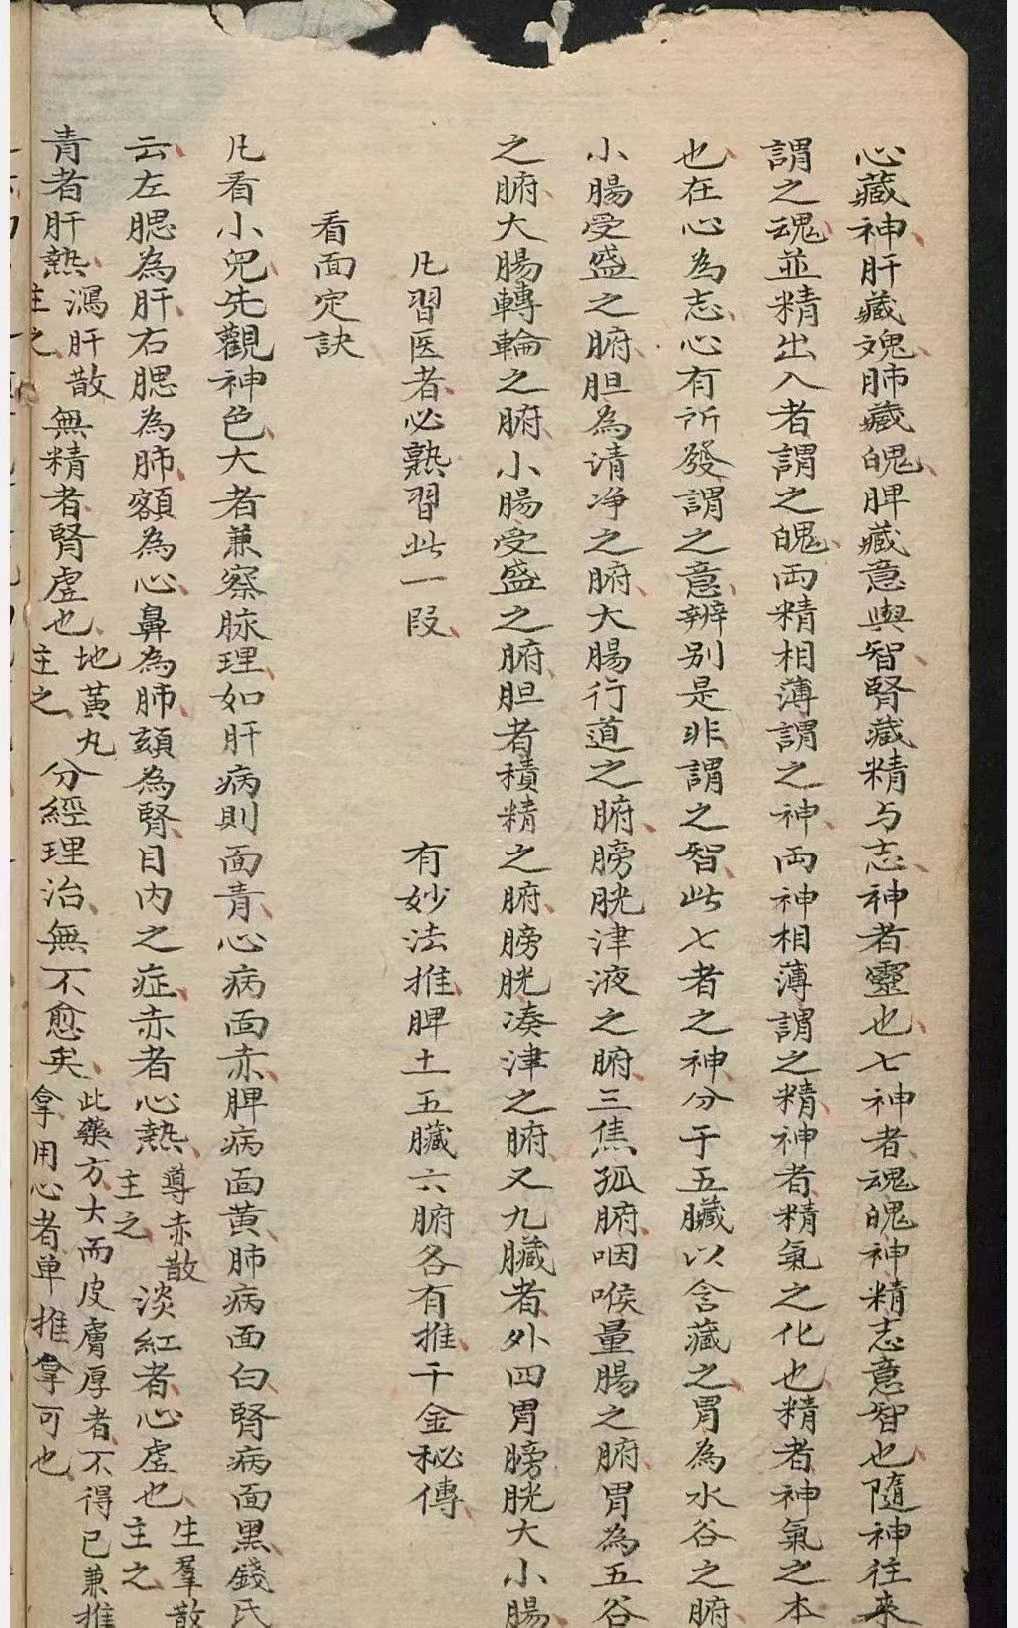 心藏神肝藏魂肺藏魄脾藏意與智腎藏精与志神者靈也七神者魂魄神精志意智也隨神往来
謂之魂並精出入者謂之魄両精相薄謂之神両神相薄謂之精神者精氣之化也精者神氣之本
也在心為志心有所發謂之意辨别是非謂之智此七者之神分于五臟以含藏之胃為水谷之腑
小腸受盛之腑胆為清净之腑大腸行道之腑膀胱津液之腑三焦孤腑咽喉量腸之腑胃為五谷
之腑大腸轉輪之腑小腸受盛之腑胆者積精之腑膀胱凑津之腑又九臟者外四胃膀胱大小腸
凢習医者必熟習此一段 有妙法推脾土五臟六腑各有推千金秘傳
看面定訣
凢看小兒先觀神色大者兼察脉理如肝病則面青心病面赤脾病面黄肺病面白腎病面黑錢氏
云左腮為肝右腮為肺額為心鼻為肺頦為腎目内之症赤者心熱導赤散主之淡紅者心虚也生羣散主之
青者肝熱瀉肝散主之無精者腎虚也地黃丸主之分經理治無不愈矣此藥方大而皮膚厚者不得已兼推拿用心者单推拿可也